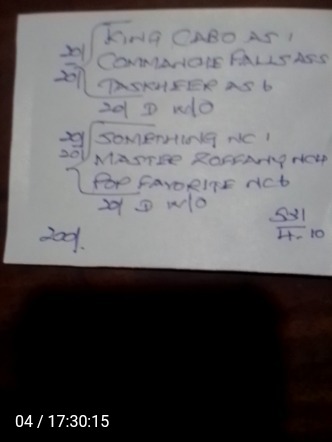 KING CABO AS 1
20/ COMMANCHE FALLS AS5
20/ TASKHEER AS 6
20/ D W/O
20/ SOMETHING NC 1
20/ MASTER ZOFFANY NC4
POP FAVORITE NC6
20/ D W/O
200/.
531
4-10
04 / 17:30:15